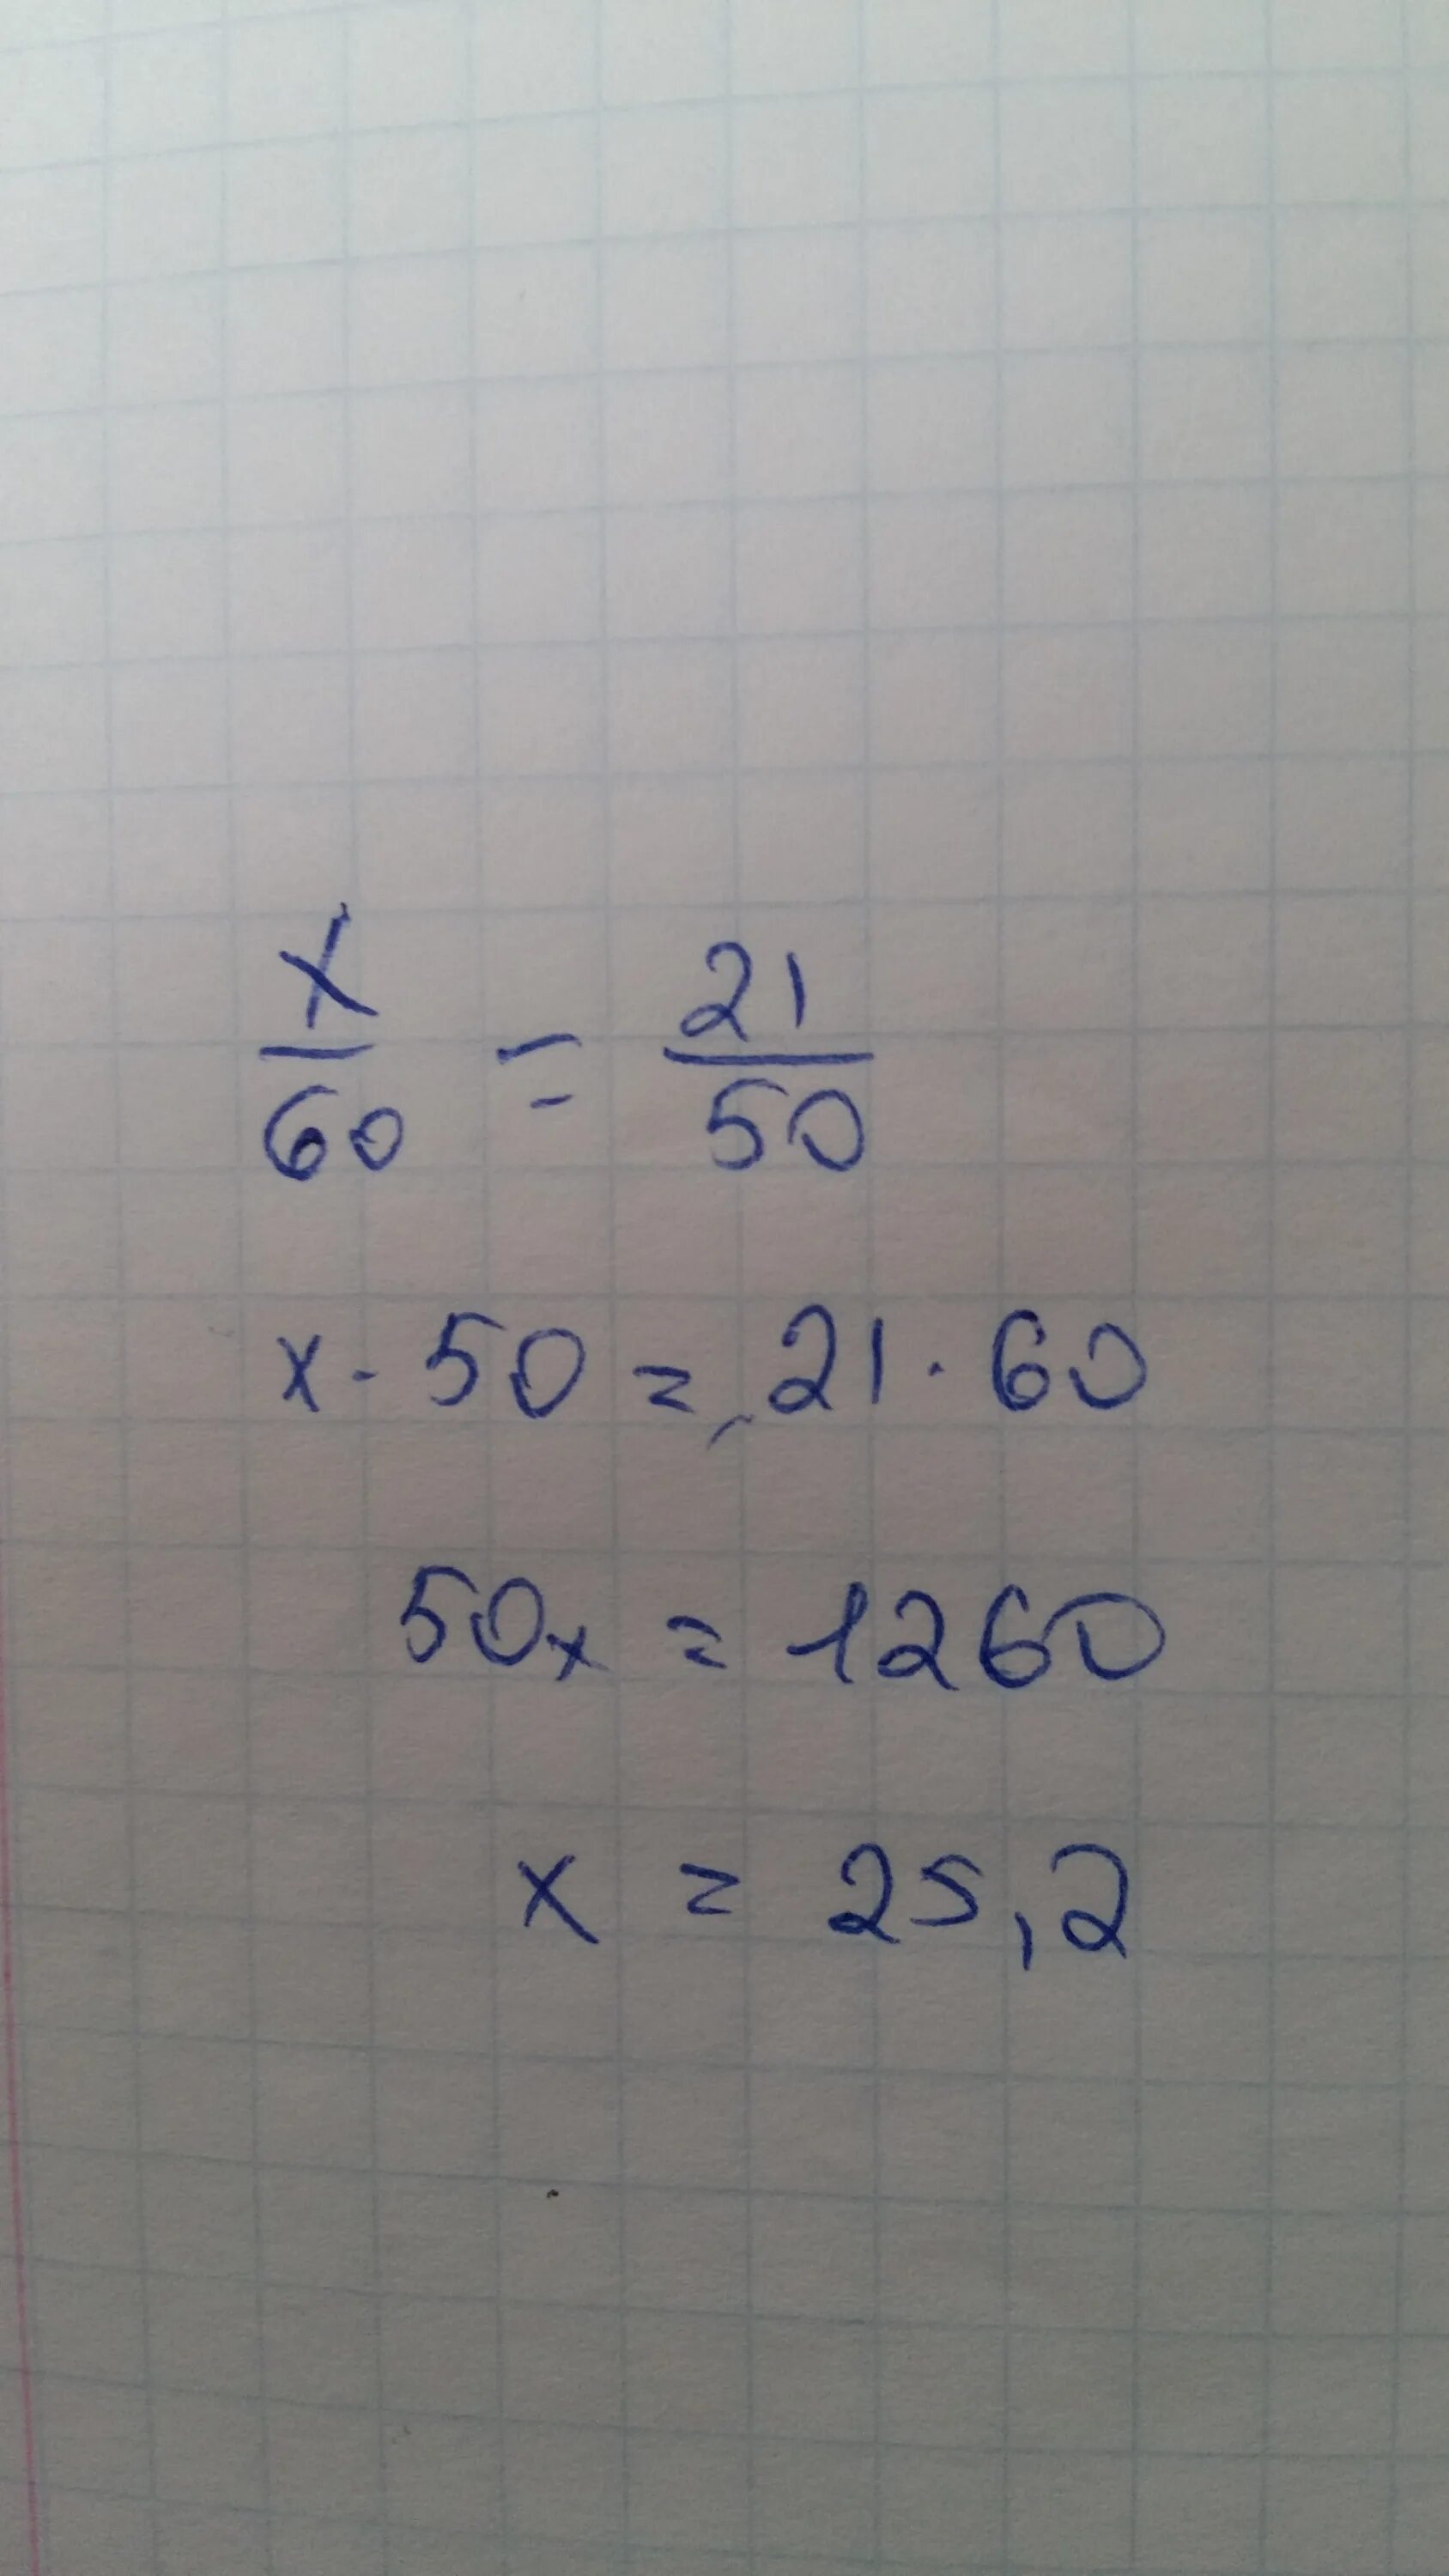 x/60 = 21/50
x · 50 = 21 · 60
50x = 1260
x = 25,2